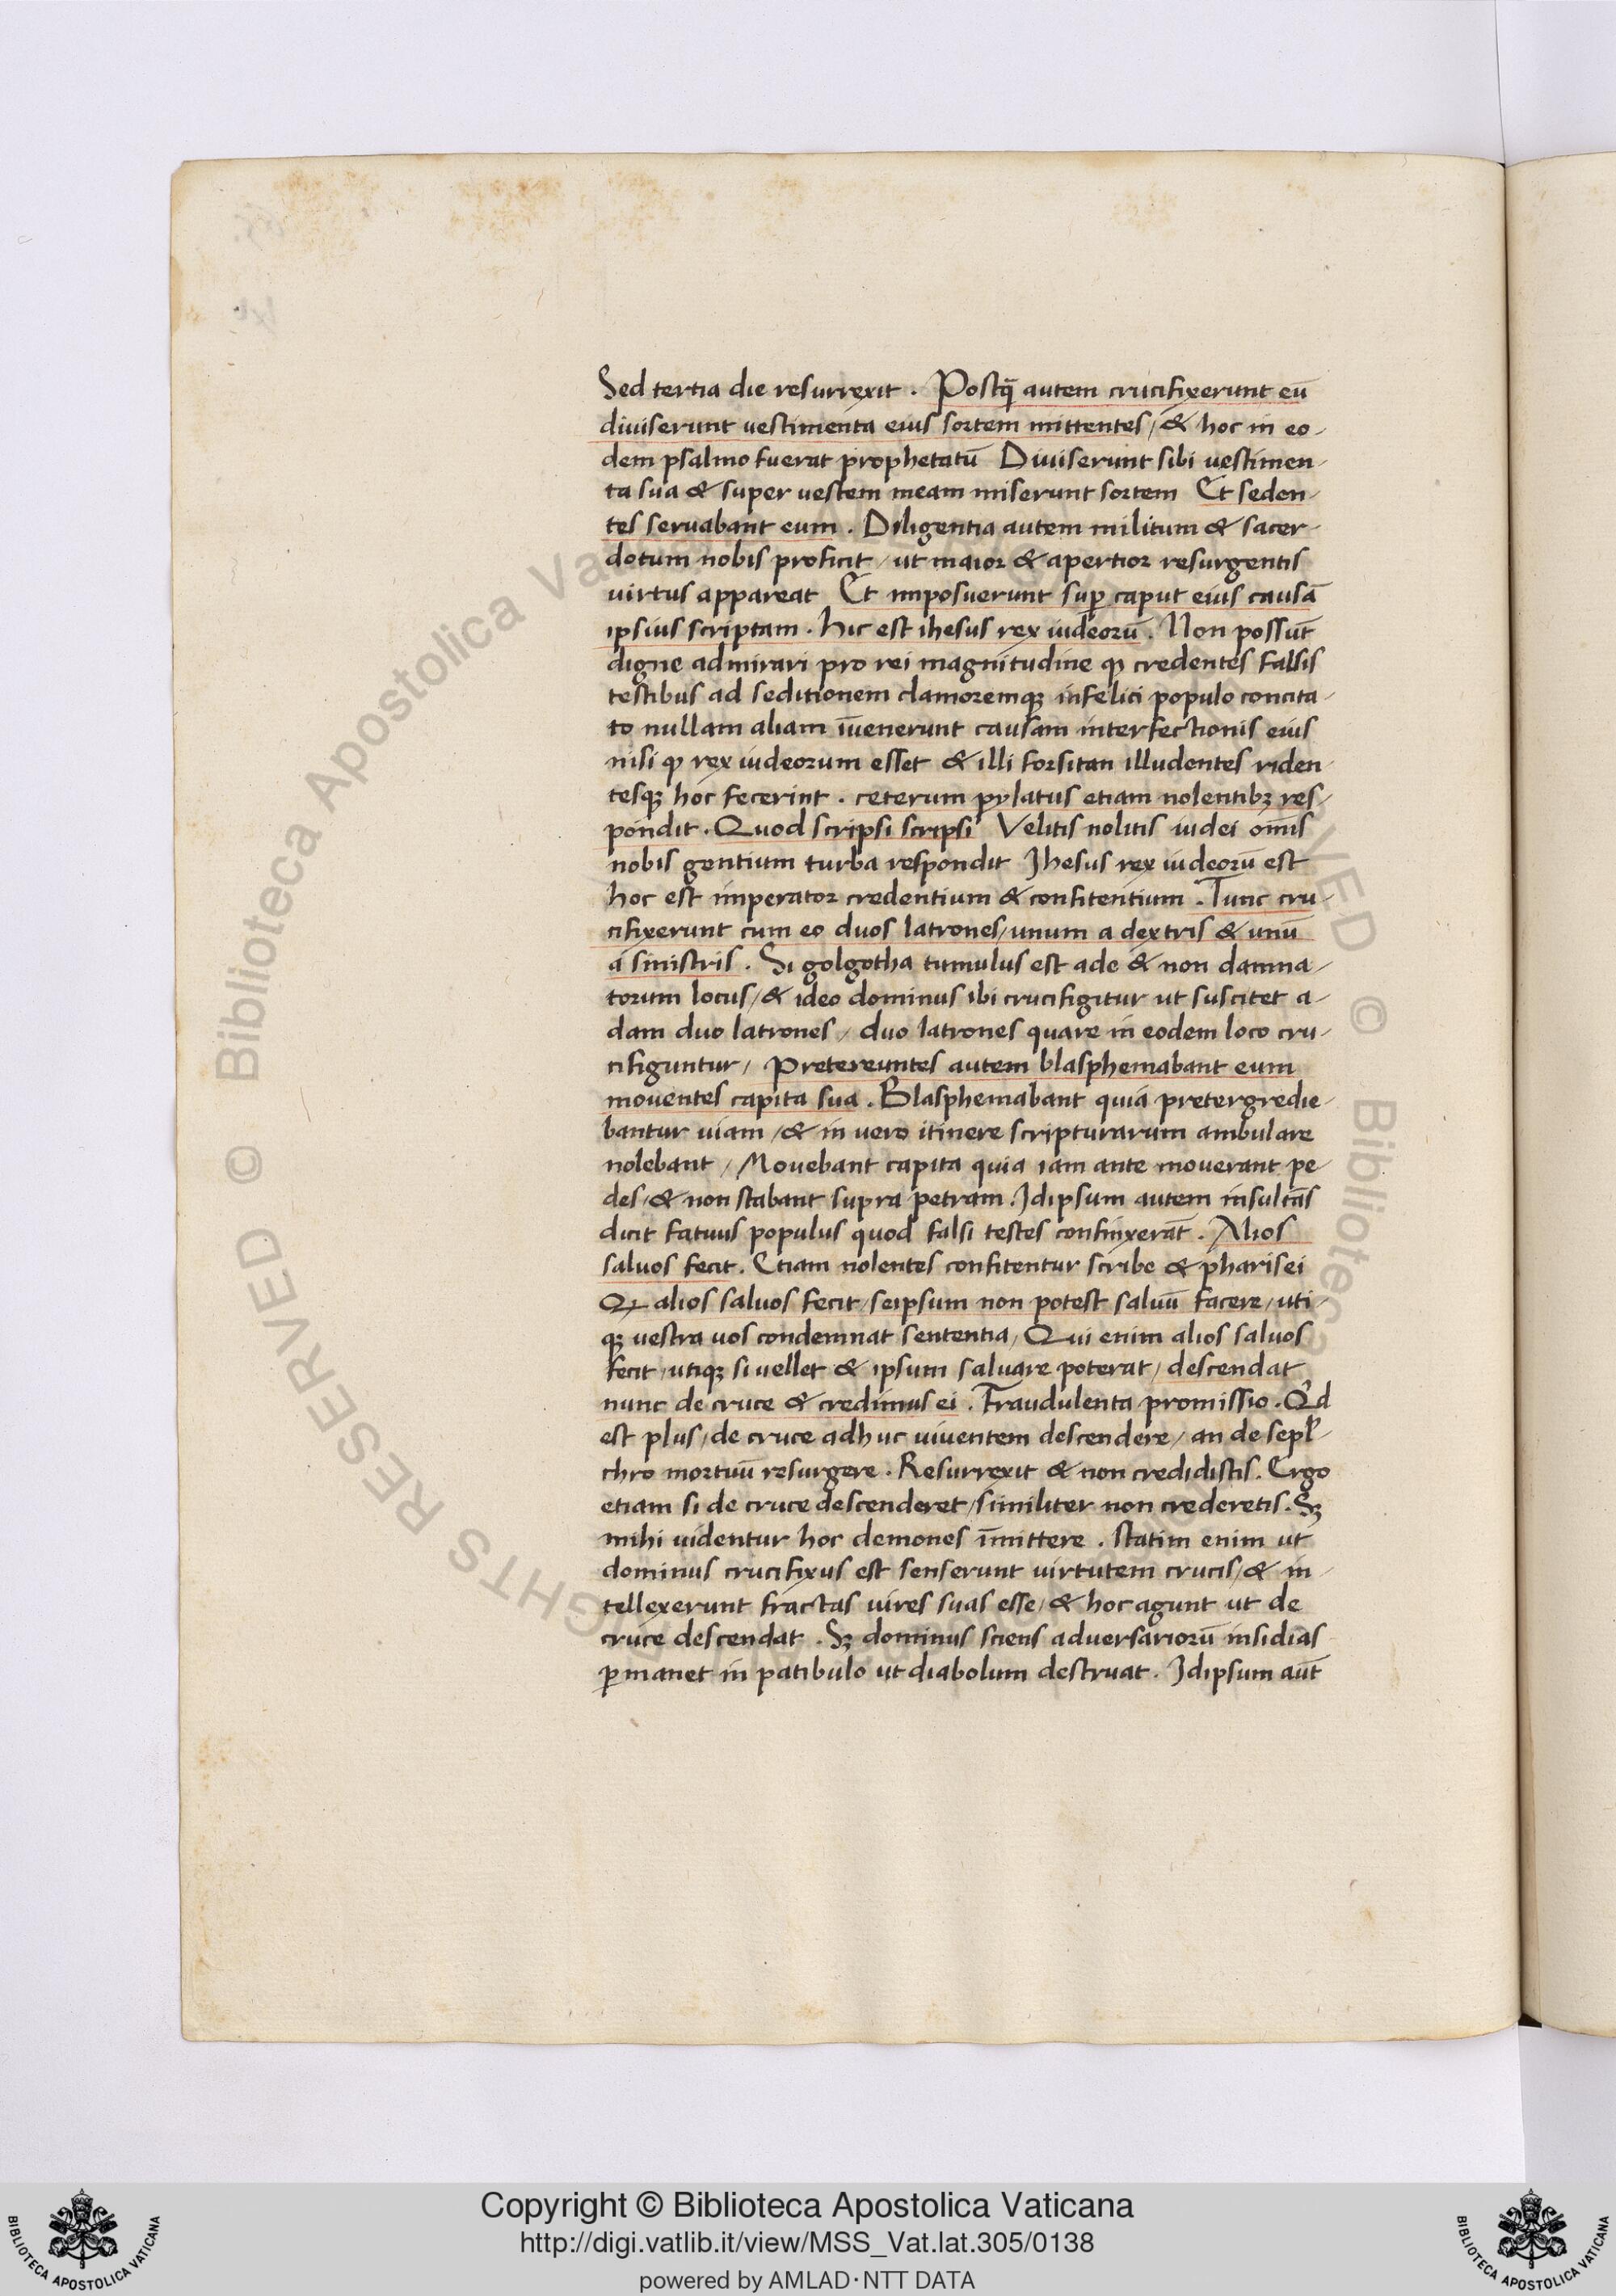 Sed tertia die resurrexit . Postq̄ autem crucifixerunt eū
diuiserunt uestimenta eius sortem mittentes / & hoc in eo-
dem psalmo fuerat prophetatū Diuiserunt sibi uestimen-
ta sua & super uestem meam miserunt sortem Et seden-
tes seruabant eum . Diligentia autem militum & sacer-
dotum nobis proficit / ut maior & apertior resurgentis
uirtus appareat Et imposuerunt suꝑ caput eius causā
ipsius scriptam . hic est ihesus rex iudeorū . Non possūt
digne admirari pro rei magnitudine ꝙ credentes falsis
testibus ad seditionem clamoremqꝫ infelici populo concita-
to nullam aliam īuenerunt causam interfectionis eius
nisi ꝙ rex iudeorum esset & illi forsitan illudentes riden-
tesqꝫ hoc fecerint . ceterum pylatus etiam nolentibꝫ res-
pondit . Quod scripsi scripsi Velitis nolitis iudei om̄is
nobis gentium turba respondit Jhesus rex iudeorū est
hoc est imperator credentium & confitentium . Tunc cru-
cifixerunt cum eo duos latrones / unum a dextris & unū
a sinistris . Si golgotha tumulus est ade & non damna-
torum locus / & ideo dominus ibi crucifigitur ut suscitet a-
dam duo latrones / duo latrones quare in eodem loco cru-
cifiguntur / Pretereuntes autem blasphemabant eum
mouentes capita sua . Blasphemabant quia pretergredie-
bantur uiam / & in uero itinere scripturarum ambulare
nolebant / Mouebant capita quia iam ante mouerant pe-
des / & non stabant supra petram . Jdipsum autem insultās
dicit fatuus populus quod falsi testes confinxerāt . Alios
saluos fecit . Etiam nolentes confitentur scribe & pharisei
Ꝙ alios saluos fecit / seipsum non potest saluū facere / uti-
qꝫ uestra uos condemnat sententia / Qui enim alios saluos
fecit / utiqꝫ si uellet & ipsum saluare poterat / descendat
nunc de cruce & credimus ei . Fraudulenta promissio . Qd
est plus / de cruce adhuc uiuentem descendere / an de sepl̄-
chro mortuū resurgere . Resurrexit & non credidistis . Ergo
etiam si de cruce descenderet / similiter non crederetis . Sꝫ
mihi uidentur hoc demones īmittere . statim enim ut
dominus crucifixus est senserunt uirtutem crucis / & in-
tellexerunt fractas uires suas esse / & hoc agunt ut de
cruce descendat . Sꝫ dominus sciens aduersariorū insidias
ꝑmanet in patibulo ut diabolum destruat . Jdipsum aūt
© Biblioteca Apostolica Vaticana
RIGHTS RESERVED
Copyright © Biblioteca Apostolica Vaticana
http://digi.vatlib.it/view/MSS_Vat.lat.305/0138
powered by AMLAD·NTT DATA
BIBLIOTECA APOSTOLICA VATICANA
BIBLIOTECA APOSTOLICA VATICANA